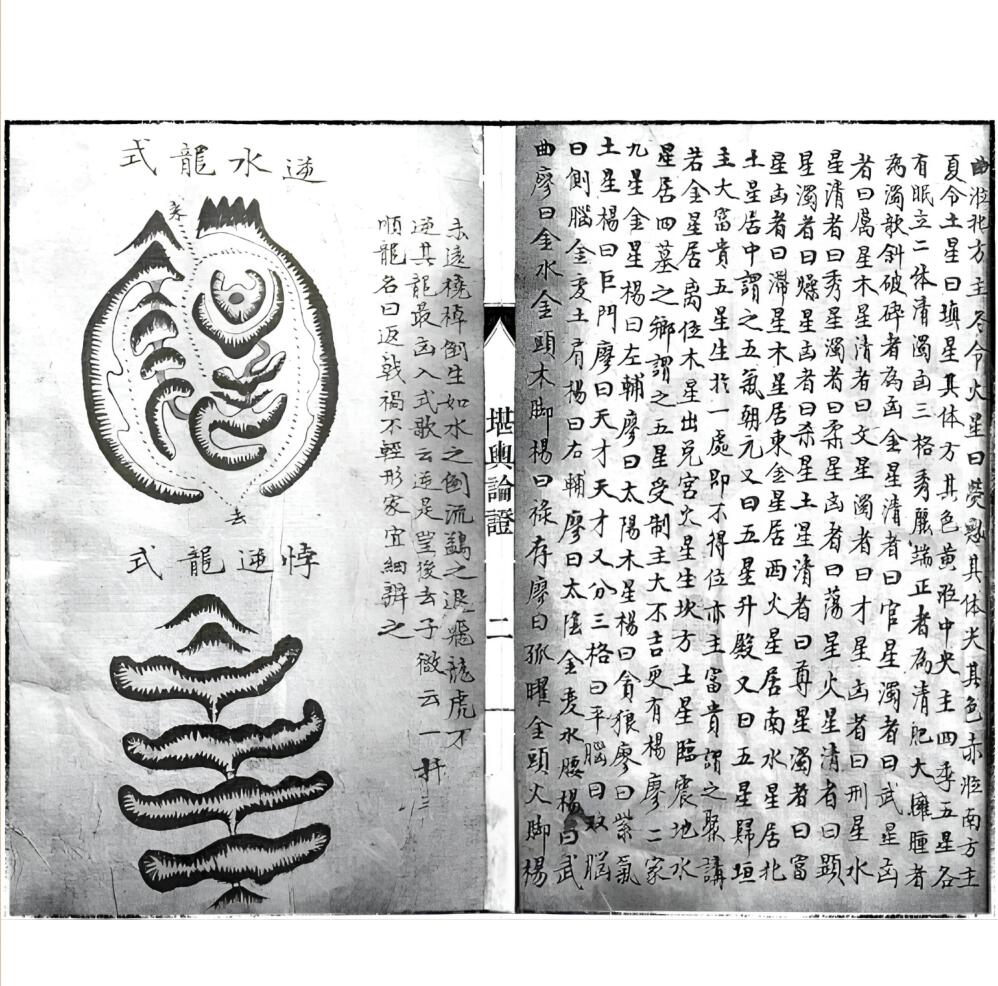 曲涖北方主冬令火星曰熒惑其体尖其色赤涖南方主
夏令土星曰填星其体方其色黃涖中央主四季五星各
有眠立二体清濁凶三格秀麗端正者為清肥大臃腫者
為濁欹斜破碎者為凶金星清者曰官星濁者曰武星凶
者曰厲星木星清者曰文星濁者曰才星凶者曰刑星水
星清者曰秀星濁者曰柔星凶者曰蕩星火星清者曰顯
星濁者曰燥星凶者曰杀星土星清者曰尊星濁者曰富
星凶者曰滯星木星居東金星居西火星居南水星居北
土星居中謂之五氣朝元又曰五星升殿又曰五星歸垣
主大富貴五星生於一處即不得位亦主富貴謂之聚講
若金星居离位木星出兌宮火星生坎方土星臨震地水
星居四墓之鄉謂之五星受制主大不吉更有楊廖二家
九星金星楊曰左輔廖曰太陽木星楊曰貪狼廖曰紫氣
土星楊曰巨門廖曰天才天才又分三格曰平腦曰双腦
曰側腦金变土肩楊曰右輔廖曰太陰金变水腰楊曰武
曲廖曰金水金頭木脚楊曰祿存廖曰孤曜金頭火脚楊
堪輿論證
二
未遠橈棹倒生如水之倒流鷁之退飛龍虎才
逆其龍最凶入式歌云逆是豈後去子微云一三
順龍名曰返戟禍不輕形家宜細辨之
逆水龍式
来
去
悖逆龍式